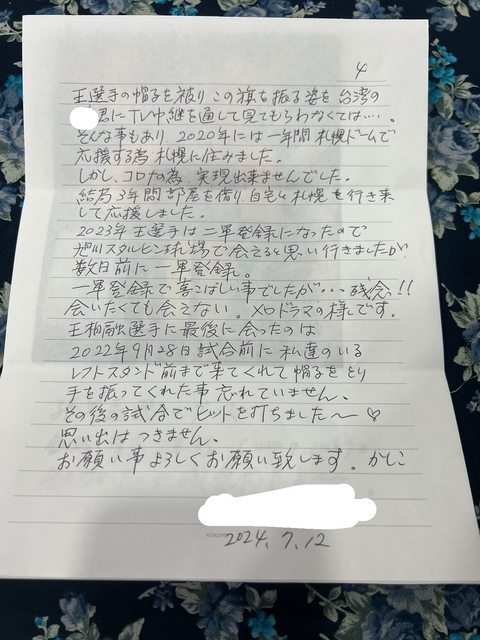 4
王選手の帽子を被り この旗を振る姿を 台湾の
君に TV中継を通して見てもらわなくては‥‥。
そんな事もあり 2020年には一年間 札幌ドームで
応援する為 札幌に住みました。
しかし、コロナの為、実現出来ませんでした。
結局 3年間 部屋を借り 自宅と札幌を行き来
して応援しました。
2023年 王選手は 二軍登録になったので
旭川スタルヒン球場で会えると思い行きましたが
数日前に 一軍登録。
一軍登録で 喜こばしい事でしたが‥‥残念!!
会いたくても会えない。メロドラマの様です。
王柏融選手に最後に会ったのは
2022年9月28日 試合前に 私達のいる
レフトスタンド前まで来てくれて 帽子をとり
手を振ってくれた事 忘れていません。
その後の試合でヒットを打ちました〜♡
思い出はつきません。
お願い事 よろしくお願い致します。かしこ
2024.7.12